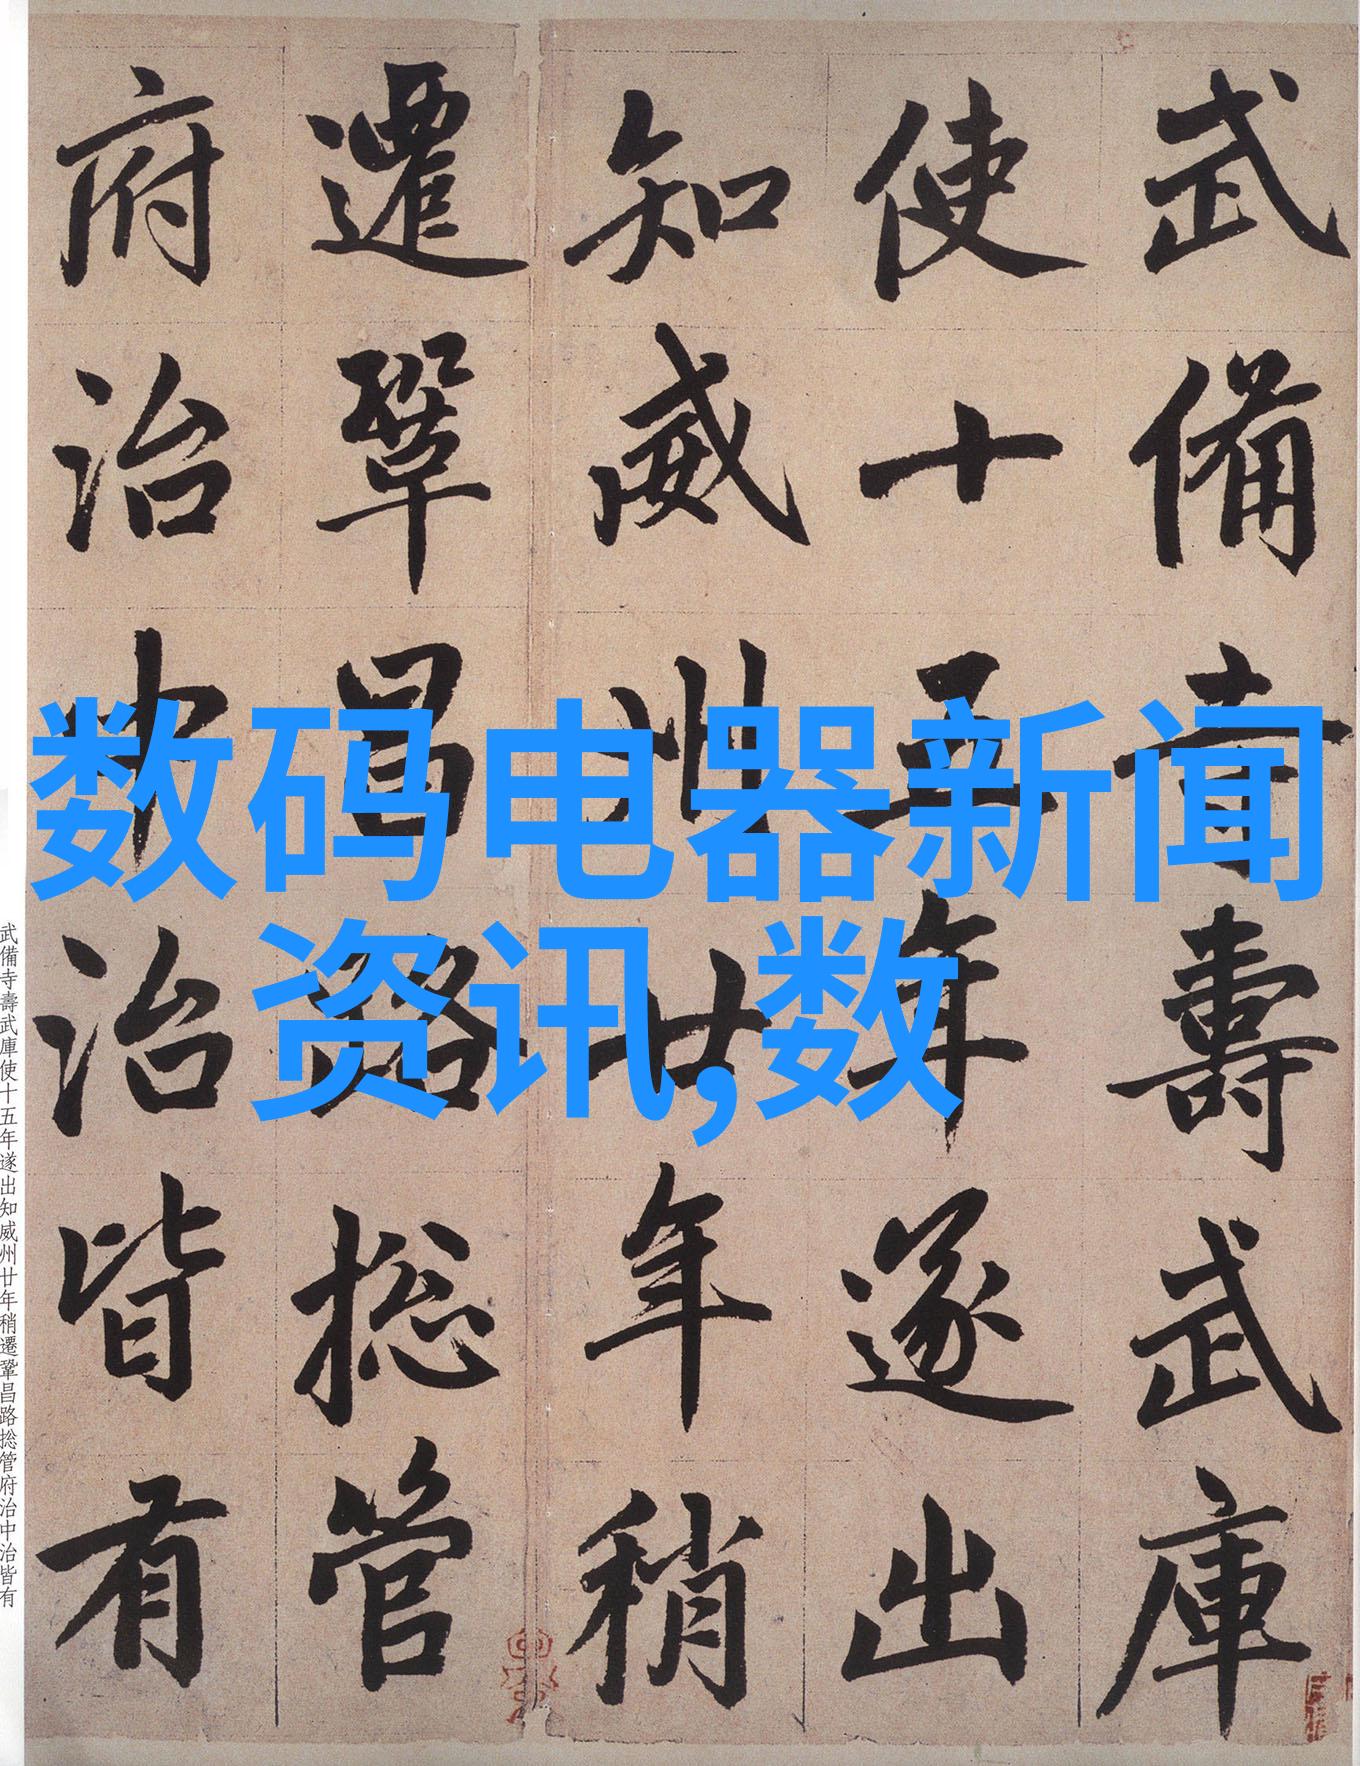 武備寺壽武庫
使十五年遂出
知威州廿年稍
遷鞏昌路捴管
府治中治皆有
数码电器新闻
资讯,数
武備寺壽武庫使十五年遂出知威州廿年稍遷鞏昌路捴管府治中治皆有